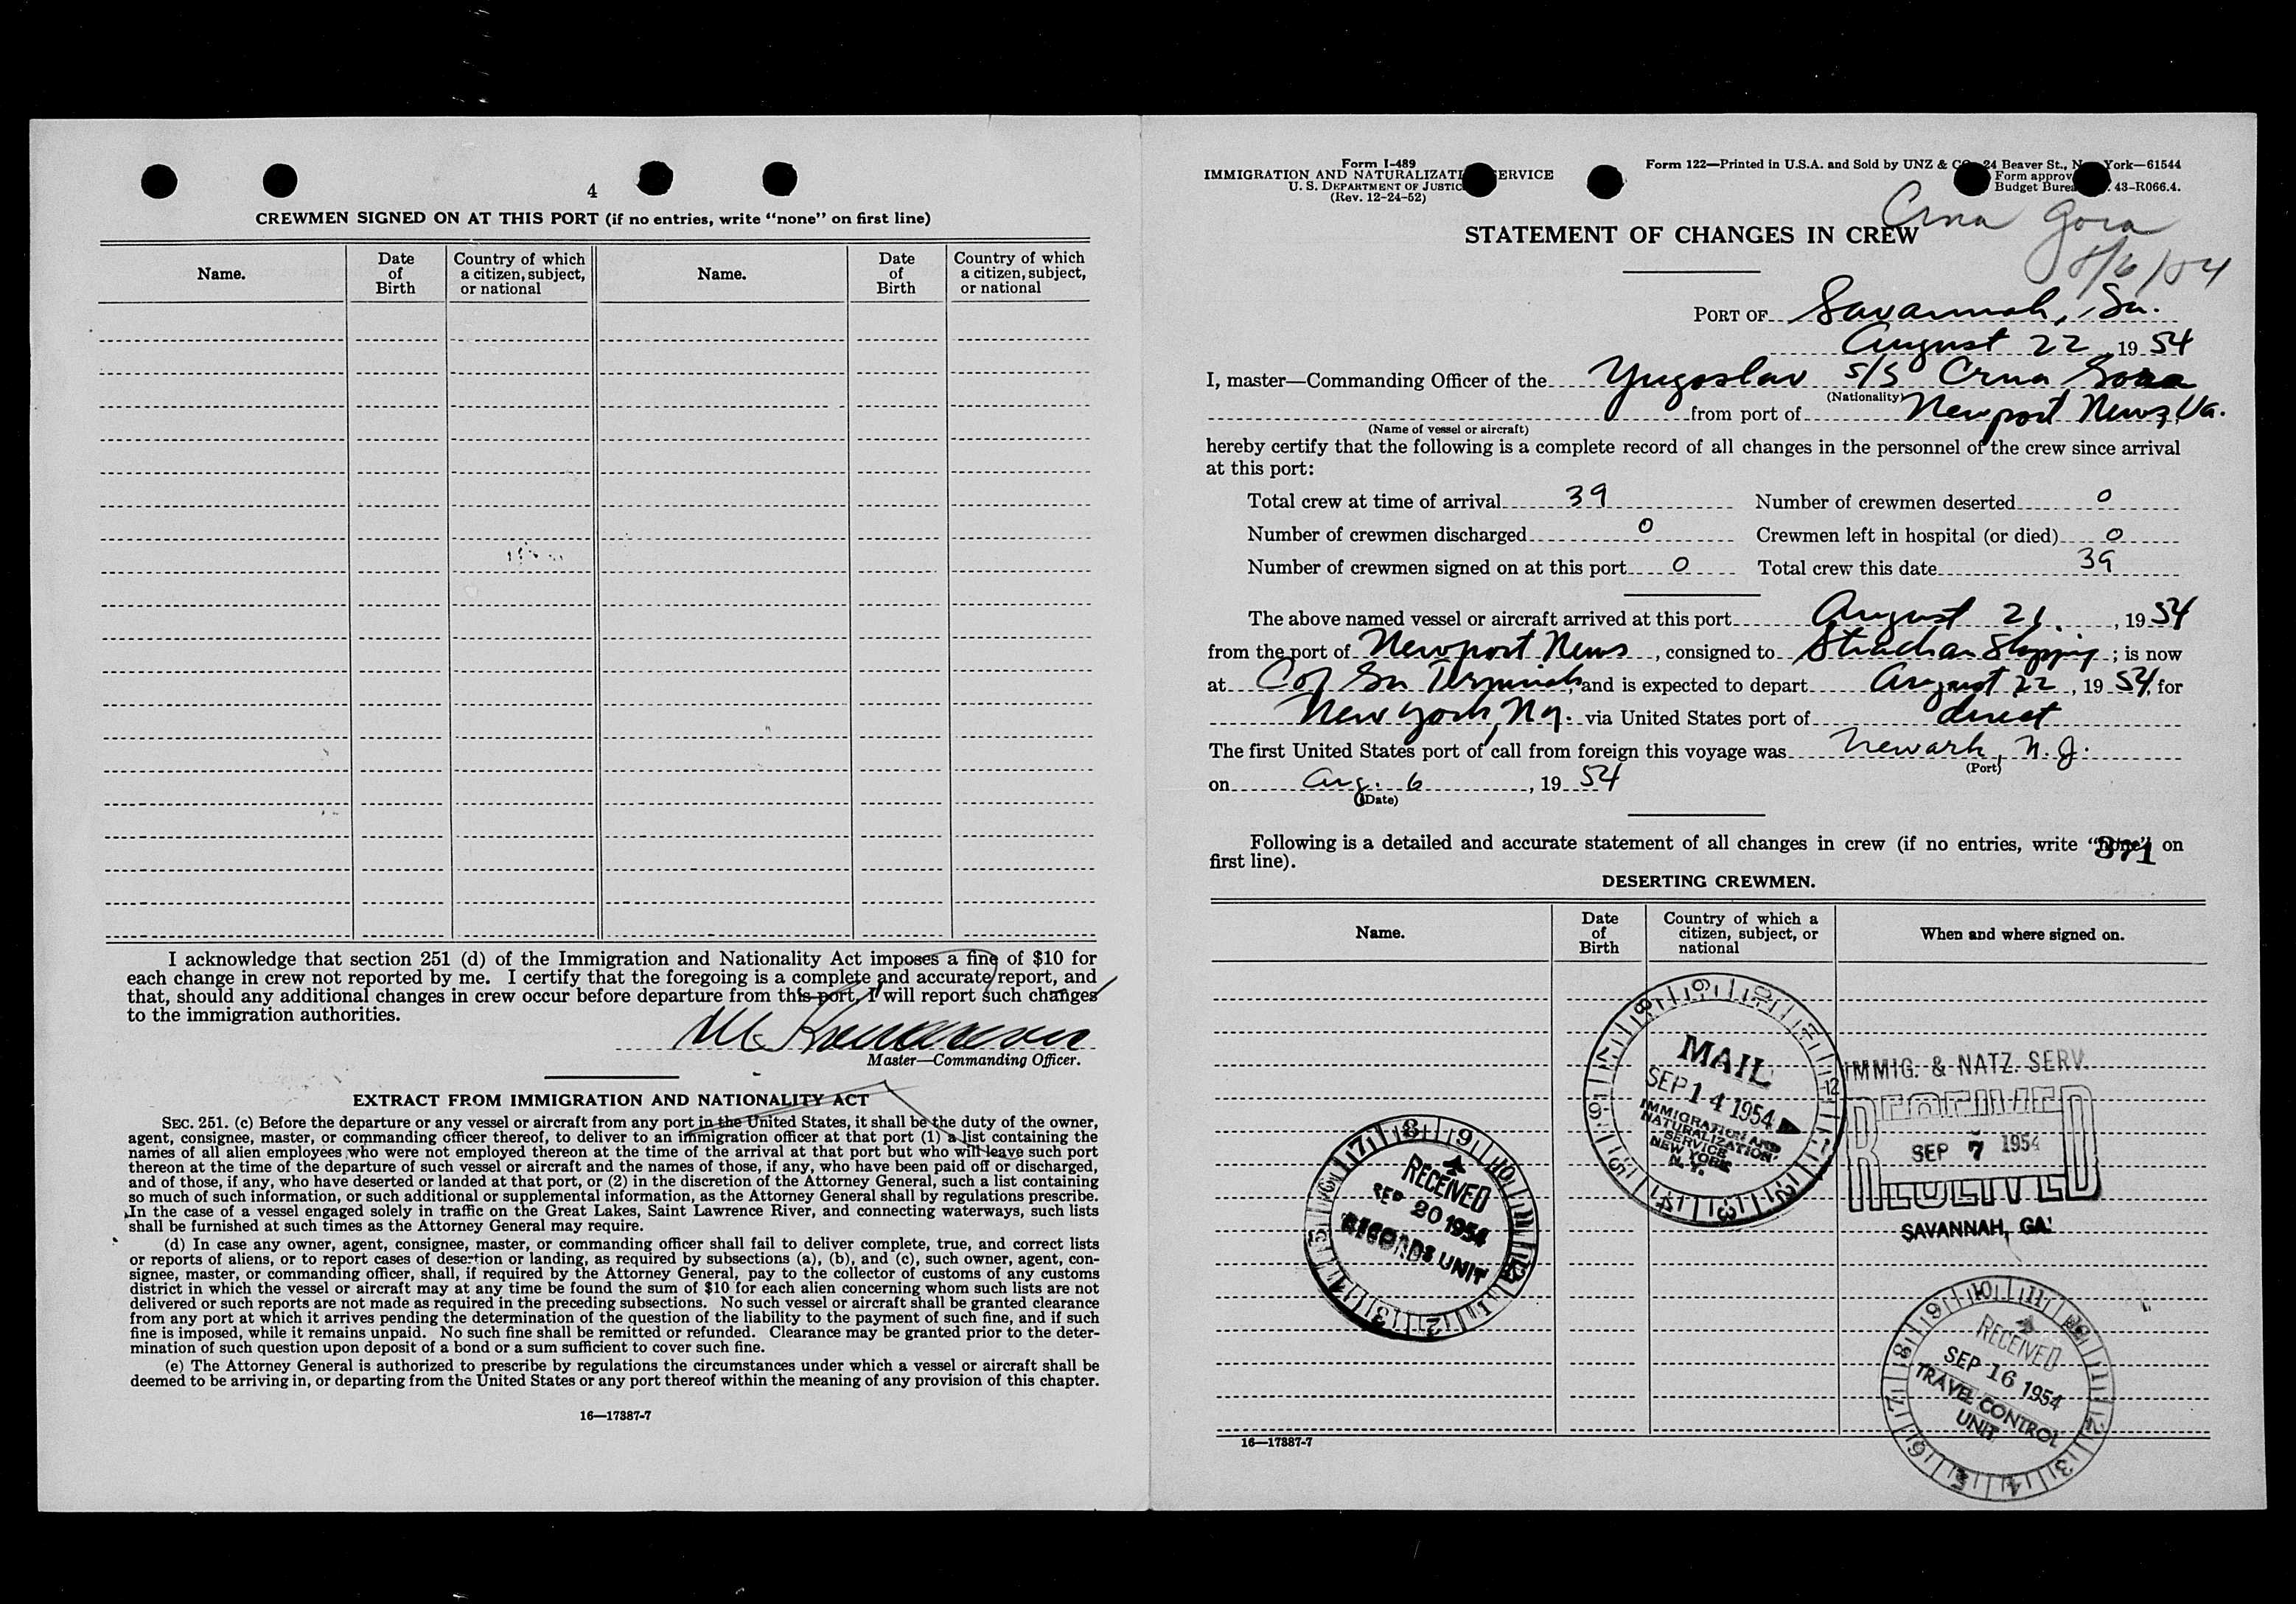 4
CREWMEN SIGNED ON AT THIS PORT (if no entries, write "none" on first line)
Name. Date of Birth Country of which a citizen, subject, or national Name. Date of Birth Country of which a citizen, subject, or national
I acknowledge that section 251 (d) of the Immigration and Nationality Act imposes a fine of $10 for
each change in crew not reported by me. I certify that the foregoing is a complete and accurate report, and
that, should any additional changes in crew occur before departure from this port, I will report such changes
to the immigration authorities.
Master—Commanding Officer.
EXTRACT FROM IMMIGRATION AND NATIONALITY ACT
SEC. 251. (c) Before the departure or any vessel or aircraft from any port in the United States, it shall be the duty of the owner,
agent, consignee, master, or commanding officer thereof, to deliver to an immigration officer at that port (1) a list containing the
names of all alien employees who were not employed thereon at the time of the arrival at that port but who will leave such port
thereon at the time of the departure of such vessel or aircraft and the names of those, if any, who have been paid off or discharged,
and of those, if any, who have deserted or landed at that port, or (2) in the discretion of the Attorney General, such a list containing
so much of such information, or such additional or supplemental information, as the Attorney General shall by regulations prescribe.
In the case of a vessel engaged solely in traffic on the Great Lakes, Saint Lawrence River, and connecting waterways, such lists
shall be furnished at such times as the Attorney General may require.
(d) In case any owner, agent, consignee, master, or commanding officer shall fail to deliver complete, true, and correct lists
or reports of aliens, or to report cases of desertion or landing, as required by subsections (a), (b), and (c), such owner, agent, con-
signee, master, or commanding officer, shall, if required by the Attorney General, pay to the collector of customs of any customs
district in which the vessel or aircraft may at any time be found the sum of $10 for each alien concerning whom such lists are not
delivered or such reports are not made as required in the preceding subsections. No such vessel or aircraft shall be granted clearance
from any port at which it arrives pending the determination of the question of the liability to the payment of such fine, and if such
fine is imposed, while it remains unpaid. No such fine shall be remitted or refunded. Clearance may be granted prior to the deter-
mination of such question upon deposit of a bond or a sum sufficient to cover such fine.
(e) The Attorney General is authorized to prescribe by regulations the circumstances under which a vessel or aircraft shall be
deemed to be arriving in, or departing from the United States or any port thereof within the meaning of any provision of this chapter.
16—17887-7
Form I-489
IMMIGRATION AND NATURALIZATI ERVICE
U. S. DEPARTMENT OF JUSTIC
(Rev. 12-24-52)
Form 122—Printed in U.S.A. and Sold by UNZ & C 24 Beaver St., N York—61544
Form approv
Budget Burea 43-R066.4.
Crna Gora
8/6/54
STATEMENT OF CHANGES IN CREW
PORT OF Savannah, Ga.
August 22, 1954
I, master—Commanding Officer of the Yugoslav s/s Crna Gora
(Nationality)
from port of Newport News, Va.
(Name of vessel or aircraft)
hereby certify that the following is a complete record of all changes in the personnel of the crew since arrival
at this port:
Total crew at time of arrival 39 Number of crewmen deserted 0
Number of crewmen discharged 0 Crewmen left in hospital (or died) 0
Number of crewmen signed on at this port 0 Total crew this date 39
The above named vessel or aircraft arrived at this port August 21, 1954
from the port of Newport News, consigned to Strachan Shipping; is now
at C of Ga Terminals, and is expected to depart August 22, 1954, for
New York, N.Y. via United States port of direct
The first United States port of call from foreign this voyage was Newark, N.J.
(Port)
on Aug. 6, 1954
(Date)
Following is a detailed and accurate statement of all changes in crew (if no entries, write "none" on
first line).
371
DESERTING CREWMEN.
Name. Date of Birth Country of which a citizen, subject, or national When and where signed on.
MAIL
SEP 14 1954
IMMIGRATION AND
NATURALIZATION
SERVICE
NEW YORK
N. Y.
IMMIG. & NATZ. SERV.
RECEIVED
SEP 7 1954
SAVANNAH, GA.
RECEIVED
SEP 20 1954
RECORDS UNIT
RECEIVED
SEP 16 1954
TRAVEL CONTROL
UNIT
16—17887-7